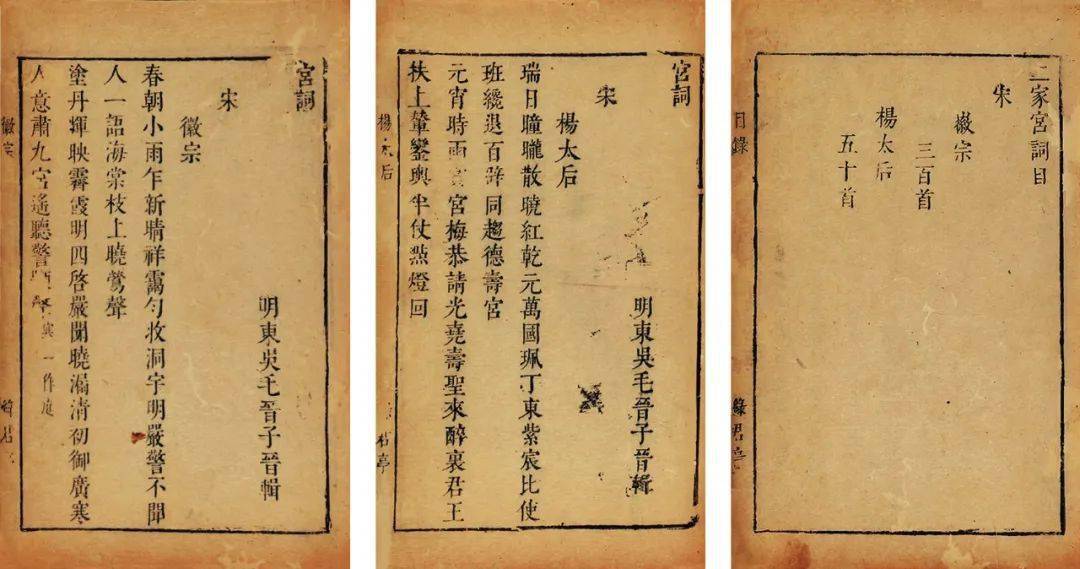 二家宮詞目
宋
徽宗
三百首
楊太后
五十首
目錄
綠君亭
宮詞
明東吳毛晉子晉輯
宋
楊太后
瑞日曈曨散曉紅乾元萬國珮丁東紫宸北使
班纔退百辟同趨德壽宮
元宵時雨賞宮梅恭請光堯壽聖來醉裏君王
扶上輦鑾輿半仗點燈回
楊太后
君亭
宮詞
明東吳毛晉子晉輯
宋
徽宗
春朝小雨乍新晴祥靄勻收洞宇明嚴警不聞
人一語海棠枝上曉鶯聲
塗丹輝映霽霞明四啓嚴闉曉漏清初御廣寒
人意肅九宮遙聽警 寒一作庭
徽宗
君